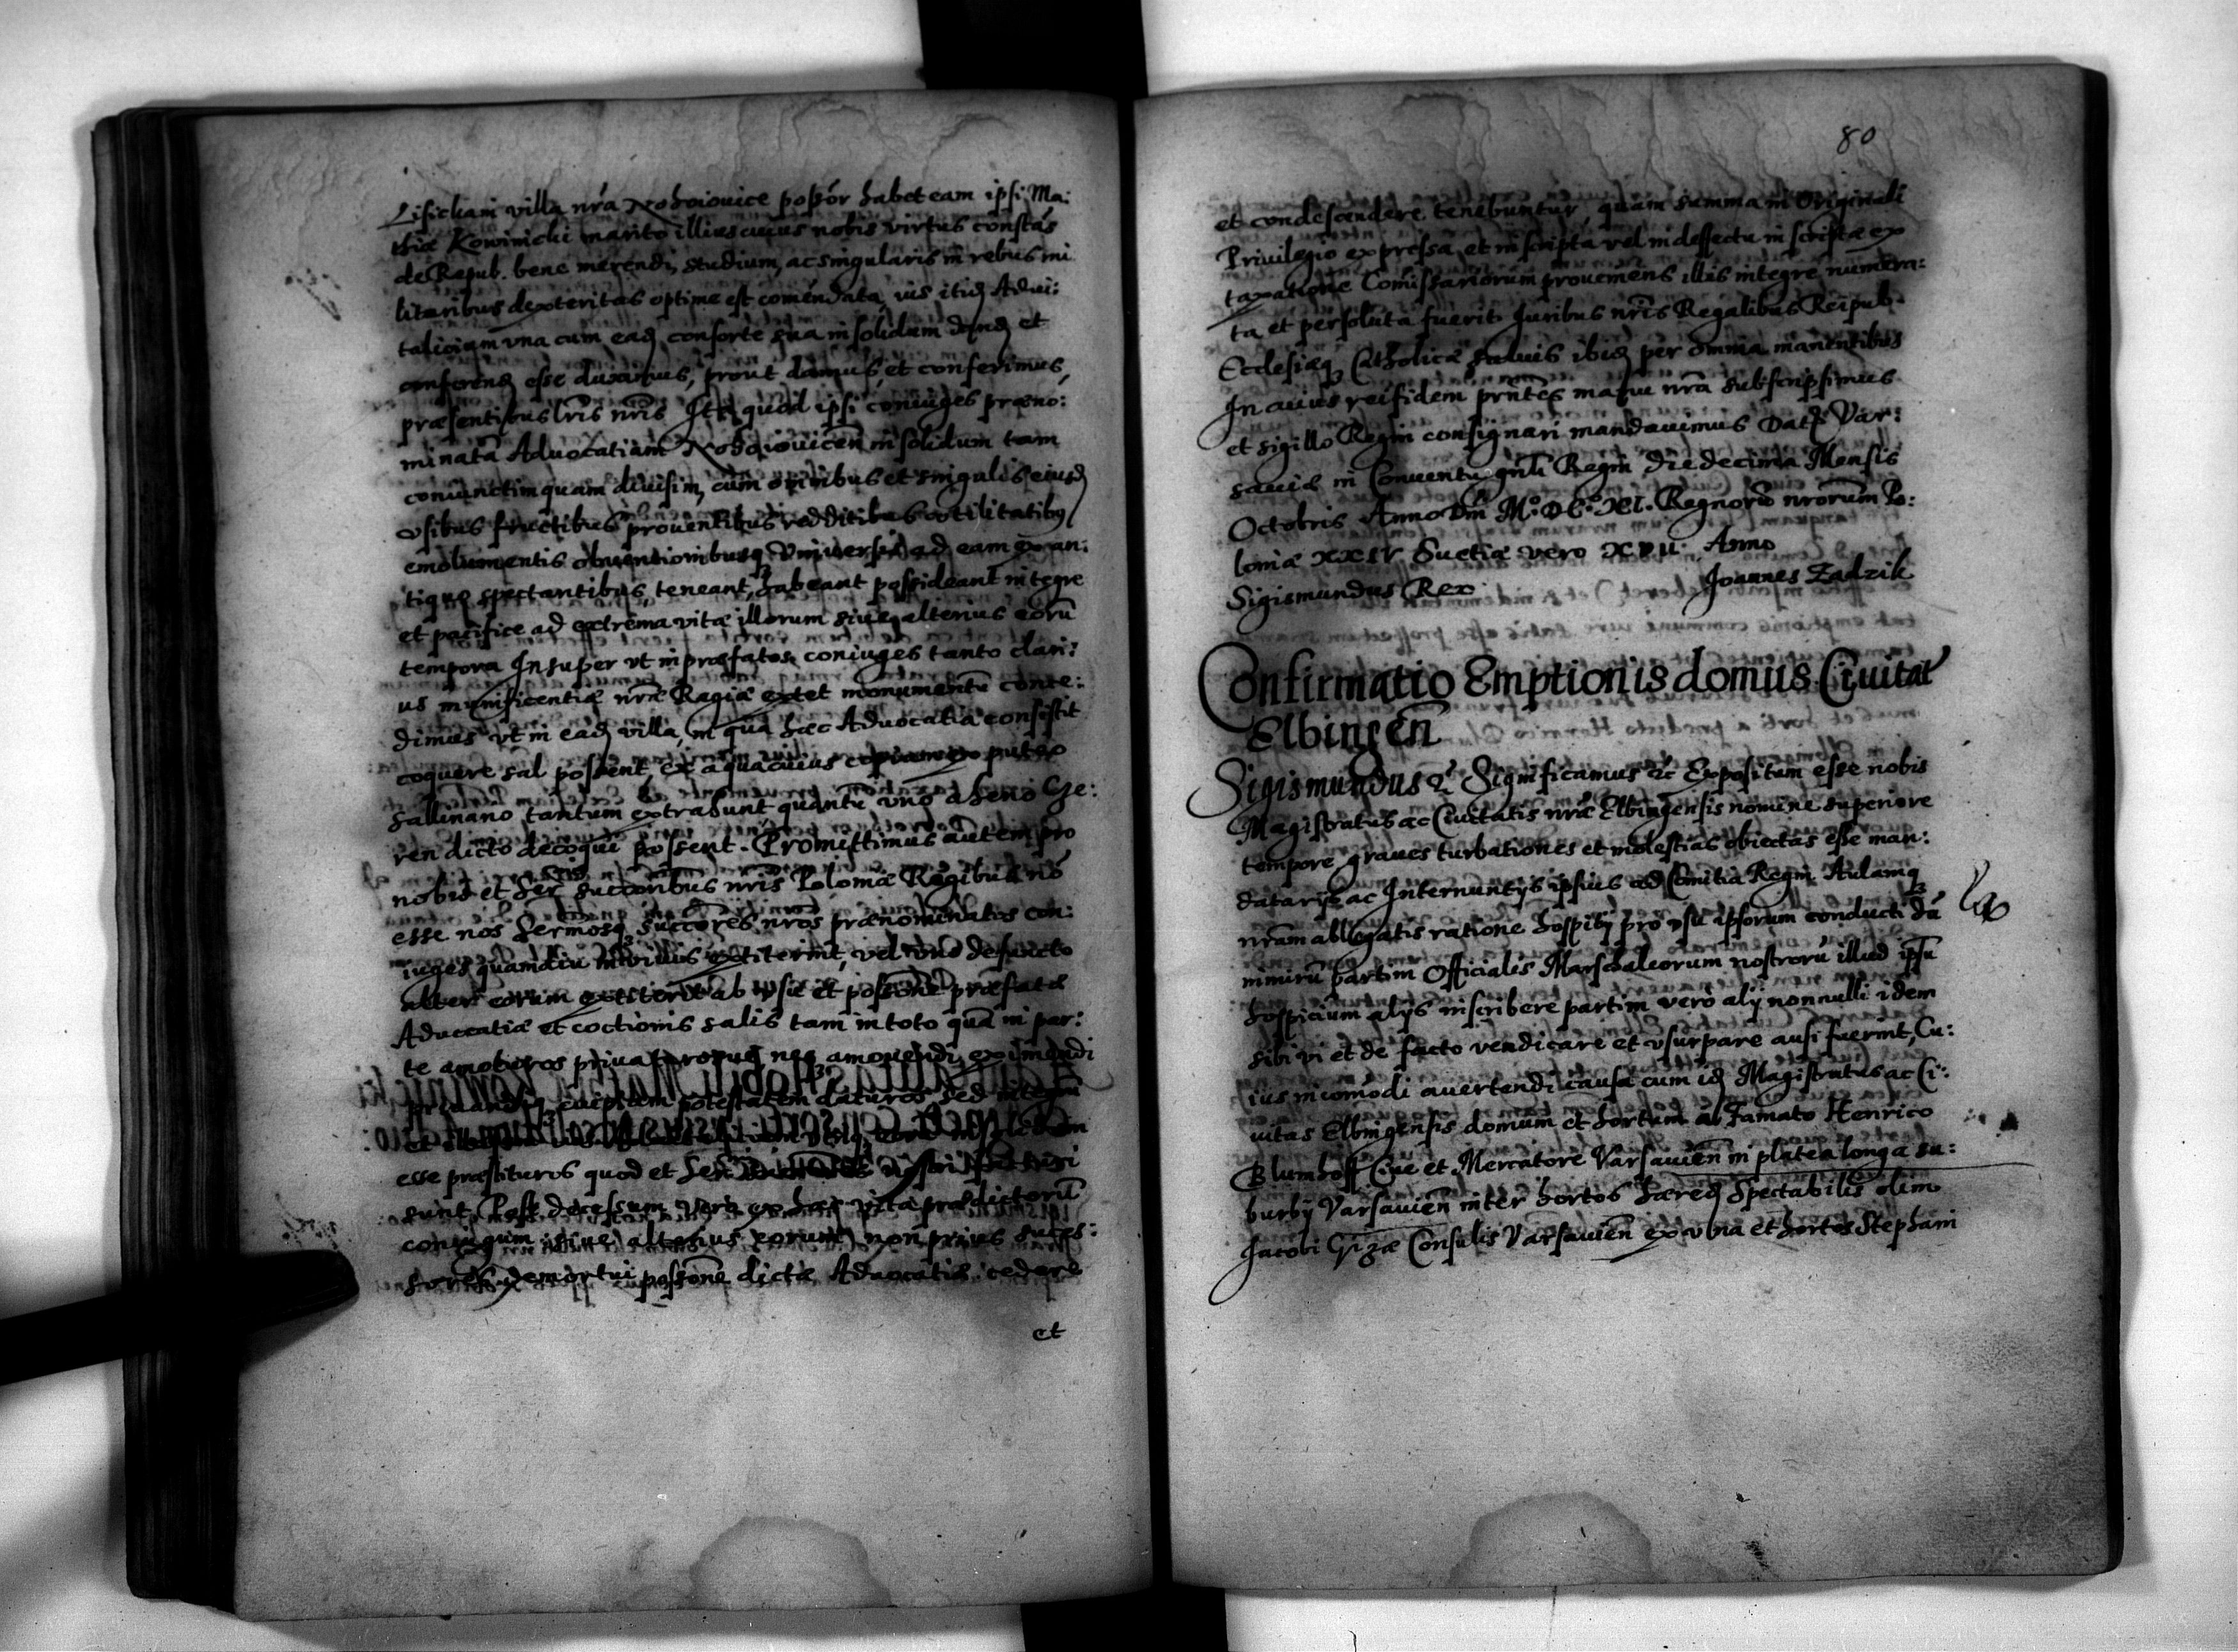 Lisickam villa nrã Nohoiouice possór habet eam ipsi Ma:
thiæ Kowinicki marito illius cuius nobis virtus constãs
de Repub. bene merendi studium, ac singularis in rebus mi
litaribus dexteritas optime est comẽndata, ius itidẽ Advi:
talicium vna cum eadẽ consorte sua in solidum dandũ et
conferendũ esse duximus, prout damus, et conferimus,
præsentibus lr̃is nr̃is Ita quod ipsi coniuges præno:
minatã Aduocatiam Nohoiouicen̄ in solidum tam
coniunctim quam diuisim, cum omnibus et singulis eiusdẽ
vsibus fructibus prouentibus redditibus vtilitatibus
emolumentis obuentionibusq3 vniuersis ad eam ex an:
tiquo spectantibus, teneant, habeant possideant integre
et pacifice ad extrema vitæ illorum siue alterius eorũ
tempora Insuper vt in præfatos coniuges tanto clari:
us munificentiæ nr̃æ Regiæ extet monumentũ conce:
dimus vt in eadẽ villa, in qua hæc Aduocatia consistit
coquere sal possent, ex aqua cuius copiam ex puteo
sallinario tantum extrahunt quantũ vno aheno Cze:
ren dicto decoqui possent. Promittimus autem pro
nobis et Ser succoribus nr̃is Poloniæ Regibus nõ
esse nos Sermosq3 succores nr̃os prænominatos con:
iuges quamdiu in viuis extiterint, vel vno defuncto
alter eorum extiterit ab vsu et possone præfatæ
Aduocatiæ et coctionis salis tam in toto quã in par:
te amoturos priuaturosue neq3 amouendi, eximendi
priuandi cuipiam potestatem daturos sed integrũ
et
esse præstituros quod et Ser
sunt Post decessum vero ex hac vita prædictorũ
coniugum siue alterius eorum non prius succes:
sores demortui possone dictæ Aduocatiæ cedere
et
80
et condescendere tenebuntur, quam summa in Originali
Privilegio expressa, et inscripta vel in deffectu inscriptæ ex
taxatione Comissariorum proueniens illis integre numera:
ta et persoluta fuerit Iuribus nr̃is Regalibus Reipub.
Ecclesiæq3 Catholicæ saluis ibidẽ per omnia manentibus
In cuius rei fidem prñtes manu nrã subscripsimus
et sigillo Regni consignari mandauimus Datũ Var:
sauiæ in Conuentu gnl̃i Regni die decima Mensis
Octobris Anno Dñi M.º D C.º XI. Regnorũ nrorum Po:
loniæ XXIV Suetiæ vero XVII Anno
Sigismundus Rex Joannes Zadzik
Confirmatio Emptionis domus Ciuitat
Elbingen̄
Sigismundus &c Significamus &c Expositum esse nobis
Magistratus ac Ciuitatis nræ Elbingensis nomine superiore
tempore graues turbationes et molestias obiectas esse man:
datarijs ac Internuntijs ipsius ad Comitia Regni Aulamq3
nram ablegatis ratione hospitij pro vsu ipsorum conducti dũ
nimirũ partim Officiales Marschalcorum nostrorũ illud ipsũ
hospicium alijs inscribere partim verò alij nonnulli idem
sibi vi et de facto vendicare et vsurpare ausi fuerint, Cu:
ius incomodi auertendi causa cum idẽ Magistratus ac Ci:
uitas Elbingensis domum et hortum ab Famato Henrico
Blumhoff Ciue et Mercatore Varsauien̄ in platea longa su:
burbij Varsauien̄ inter hortos hæredũ Spectabilis olim
Jacobi Gizæ Consulis Varsauien̄ ex vna et hortos Stephani